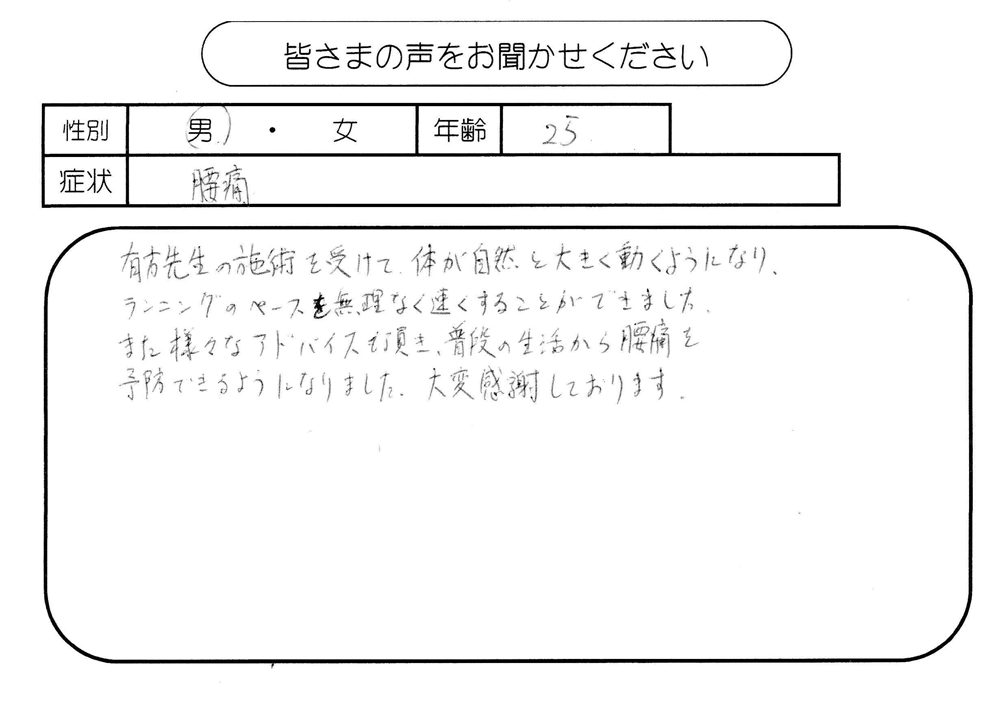 皆さまの声をお聞かせください
性別 男 ・ 女 年齢 25
症状 腰痛
有方先生の施術を受けて、体が自然と大きく動くようになり、
ランニングのペースを無理なく速くすることができました。
また様々なアドバイスも頂き、普段の生活から腰痛を
予防できるようになりました。大変感謝しております。